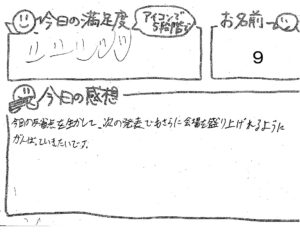 今日の満足度
アイコンで
5段階
お名前
9
今日の感想
今日の反省点を生かして、次の発表でもさらに会場を盛り上げれるように
がんばっていきたいです。